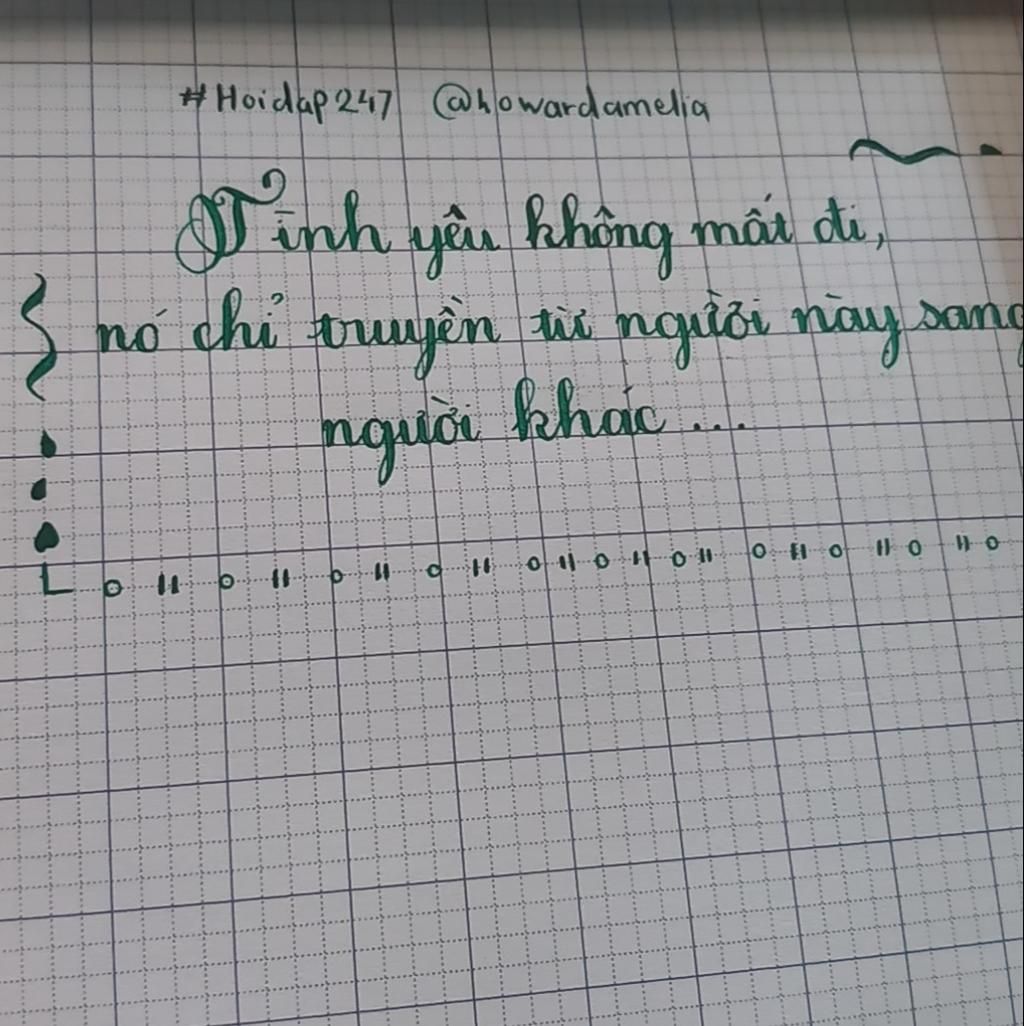 #Hoidap247 @howardamelia
Tình yêu không mất đi,
nó chỉ truyền từ người này sang
người khác...